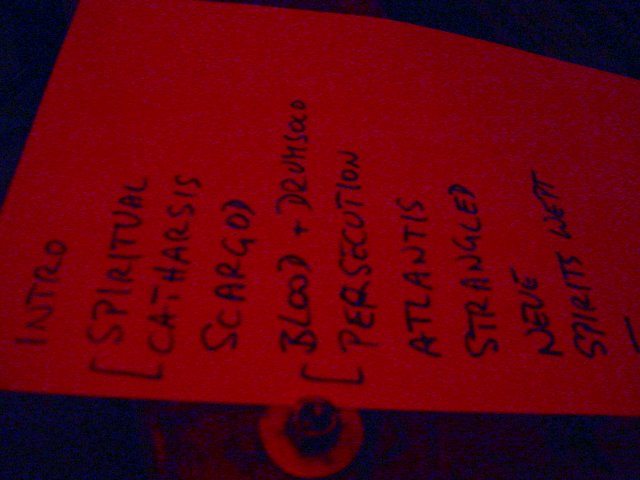 INTRO
[ SPIRITUAL
[ CATHARSIS
SCARGOD
BLOOD + DRUMSOLO
[ PERSECUTION
ATLANTIS
STRANGLED
NEUE
SPIRITS WEPT